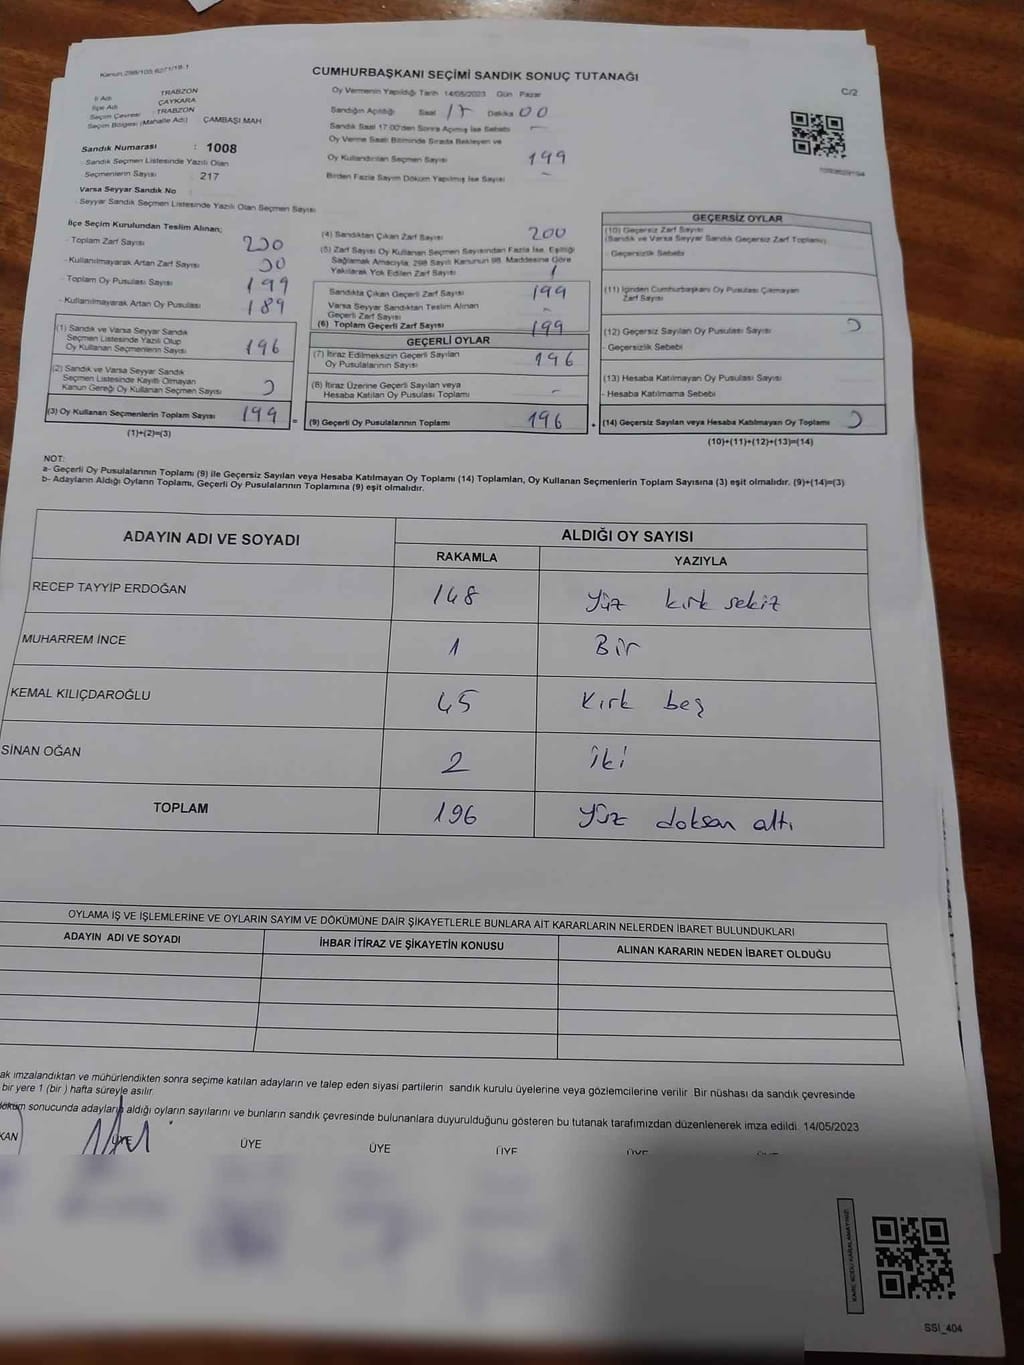 Kanun 298/105,6271/18-1
CUMHURBAŞKANI SEÇİMİ SANDIK SONUÇ TUTANAĞI
C/2
İl Adı TRABZON
İlçe Adı ÇAYKARA
Seçim Çevresi TRABZON
Seçim Bölgesi (Mahalle Adı) ÇAMBAŞI MAH
Sandık Numarası : 1008
Sandık Seçmen Listesinde Yazılı Olan
Seçmenlerin Sayısı 217
Varsa Seyyar Sandık No
Seyyar Sandık Seçmen Listesinde Yazılı Olan Seçmen Sayısı
Oy Vermenin Yapıldığı Tarih 14/05/2023 Gün Pazar
Sandığın Açıldığı Saat 17 Dakika 00
Sandık Saat 17.00'den Sonra Açılmış İse Sebebi -
Oy Verme Saati Bitiminde Sırada Bekleyen ve
Oy Kullandırılan Seçmen Sayısı 199
Birden Fazla Sayım Döküm Yapılmış İse Sayısı -
İlçe Seçim Kurulundan Teslim Alınan;
- Toplam Zarf Sayısı 230
- Kullanılmayarak Artan Zarf Sayısı 30
- Toplam Oy Pusulası Sayısı 199
- Kullanılmayarak Artan Oy Pusulası 189
(1) Sandık ve Varsa Seyyar Sandık
Seçmen Listesinde Yazılı Olup
Oy Kullanan Seçmenlerin Sayısı 196
(2) Sandık ve Varsa Seyyar Sandık
Seçmen Listesinde Kayıtlı Olmayan
Kanun Gereği Oy Kullanan Seçmen Sayısı
(3) Oy Kullanan Seçmenlerin Toplam Sayısı 199 =
(1)+(2)=(3)
(4) Sandıktan Çıkan Zarf Sayısı 200
(5) Zarf Sayısı Oy Kullanan Seçmen Sayısından Fazla İse, Eşitliği
Sağlamak Amacıyla, 298 Sayılı Kanunun 98. Maddesine Göre
Yakılarak Yok Edilen Zarf Sayısı 1
Sandıkta Çıkan Geçerli Zarf Sayısı 199
Varsa Seyyar Sandıktan Teslim Alınan
Geçerli Zarf Sayısı -
(6) Toplam Geçerli Zarf Sayısı 199
GEÇERLİ OYLAR
(7) İtiraz Edilmeksizin Geçerli Sayılan
Oy Pusulalarının Sayısı 196
(8) İtiraz Üzerine Geçerli Sayılan veya
Hesaba Katılan Oy Pusulası Toplamı -
(9) Geçerli Oy Pusulalarının Toplamı 196 +
GEÇERSİZ OYLAR
(10) Geçersiz Zarf Sayısı
(Sandık ve Varsa Seyyar Sandık Geçersiz Zarf Toplamı)
- Geçersizlik Sebebi
(11) İçinden Cumhurbaşkanı Oy Pusulası Çıkmayan
Zarf Sayısı
(12) Geçersiz Sayılan Oy Pusulası Sayısı
- Geçersizlik Sebebi
(13) Hesaba Katılmayan Oy Pusulası Sayısı
- Hesaba Katılmama Sebebi
(14) Geçersiz Sayılan veya Hesaba Katılmayan Oy Toplamı
(10)+(11)+(12)+(13)=(14)
NOT:
a- Geçerli Oy Pusulalarının Toplamı (9) ile Geçersiz Sayılan veya Hesaba Katılmayan Oy Toplamı (14) Toplamları, Oy Kullanan Seçmenlerin Toplam Sayısına (3) eşit olmalıdır. (9)+(14)=(3)
b- Adayların Aldığı Oyların Toplamı, Geçerli Oy Pusulalarının Toplamına (9) eşit olmalıdır.
ADAYIN ADI VE SOYADI ALDIĞI OY SAYISI
RAKAMLA YAZIYLA
RECEP TAYYİP ERDOĞAN 148 Yüz kırk sekiz
MUHARREM İNCE 1 Bir
KEMAL KILIÇDAROĞLU 45 Kırk beş
SİNAN OĞAN 2 İki
TOPLAM 196 Yüz doksan altı
OYLAMA İŞ VE İŞLEMLERİNE VE OYLARIN SAYIM VE DÖKÜMÜNE DAİR ŞİKAYETLERLE BUNLARA AİT KARARLARIN NELERDEN İBARET BULUNDUKLARI
ADAYIN ADI VE SOYADI İHBAR İTİRAZ VE ŞİKAYETİN KONUSU ALINAN KARARIN NEDEN İBARET OLDUĞU
ak imzalandıktan ve mühürlendikten sonra seçime katılan adayların ve talep eden siyasi partilerin sandık kurulu üyelerine veya gözlemcilerine verilir. Bir nüshası da sandık çevresinde
bir yere 1 (bir) hafta süreyle asılır.
döküm sonucunda adayların aldığı oyların sayılarını ve bunların sandık çevresinde bulunanlara duyurulduğunu gösteren bu tutanak tarafımızdan düzenlenerek imza edildi. 14/05/2023
KAN ÜYE ÜYE ÜYE ÜYE ÜYE
KARE KODU KARALAMAYINIZ
SSI_404